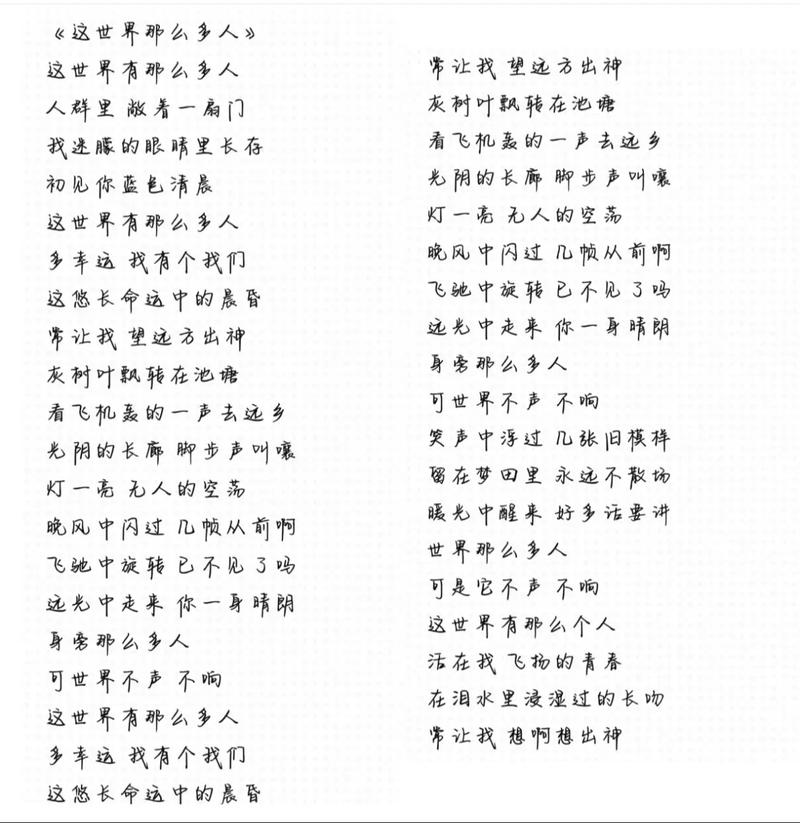 《这世界那么多人》
这世界有那么多人
人群里 敞着一扇门
我迷朦的眼睛里长存
初见你蓝色清晨
这世界有那么多人
多幸运 我有个我们
这悠长命运中的晨昏
常让我 望远方出神
灰树叶飘转在池塘
看飞机轰的一声去远乡
光阴的长廊 脚步声叫嚷
灯一亮 无人的空荡
晚风中闪过 几帧从前啊
飞驰中旋转 已不见了吗
远光中走来 你一身晴朗
身旁那么多人
可世界不声 不响
这世界有那么多人
多幸运 我有个我们
这悠长命运中的晨昏
常让我 望远方出神
灰树叶飘转在池塘
看飞机轰的一声去远乡
光阴的长廊 脚步声叫嚷
灯一亮 无人的空荡
晚风中闪过 几帧从前啊
飞驰中旋转 已不见了吗
远光中走来 你一身晴朗
身旁那么多人
可世界不声 不响
笑声中浮过 几张旧模样
留在梦田里 永远不散场
暖光中醒来 好多话要讲
世界那么多人
可是它不声 不响
这世界有那么个人
活在我 飞扬的青春
在泪水里浸湿过的长吻
常让我 想啊想出神